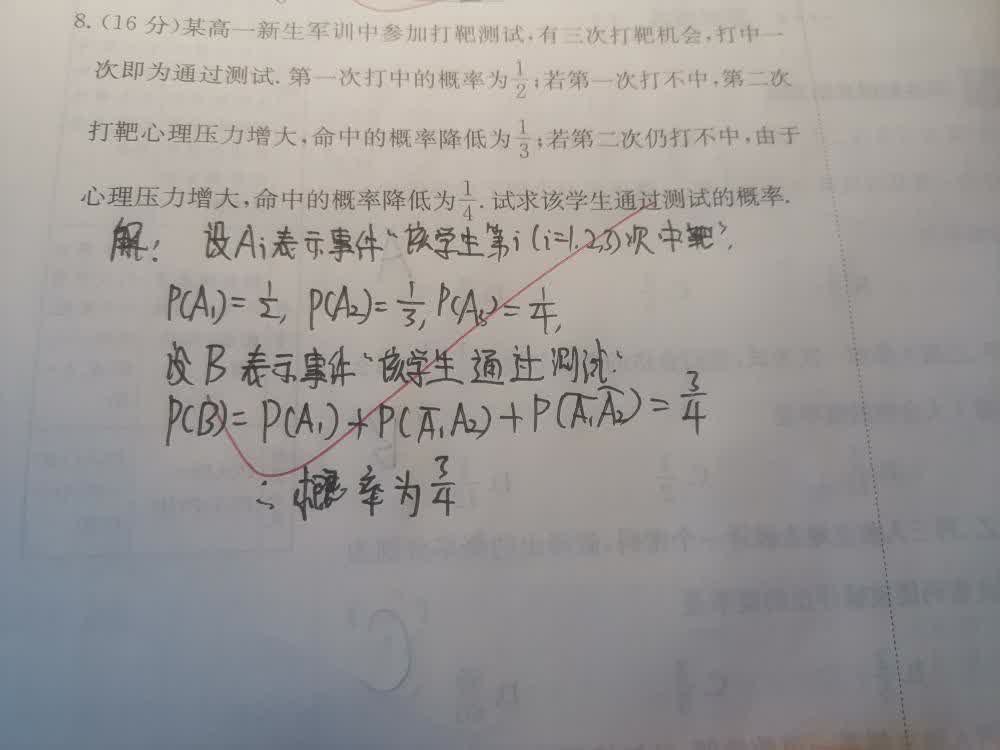 8. (16分)某高一新生军训中参加打靶测试,有三次打靶机会,打中一
次即为通过测试. 第一次打中的概率为1/2;若第一次打不中,第二次
打靶心理压力增大,命中的概率降低为1/3;若第二次仍打不中,由于
心理压力增大,命中的概率降低为1/4. 试求该学生通过测试的概率.
解: 设Ai表示事件“该学生第i(i=1,2,3)次中靶”,
P(A₁)=1/2, P(A₂)=1/3, P(A₃)=1/4,
设B表示事件“该学生通过测试”
P(B)=P(A₁)+P(A̅₁A₂)+P(A̅₁A̅₂)=3/4
∴概率为3/4